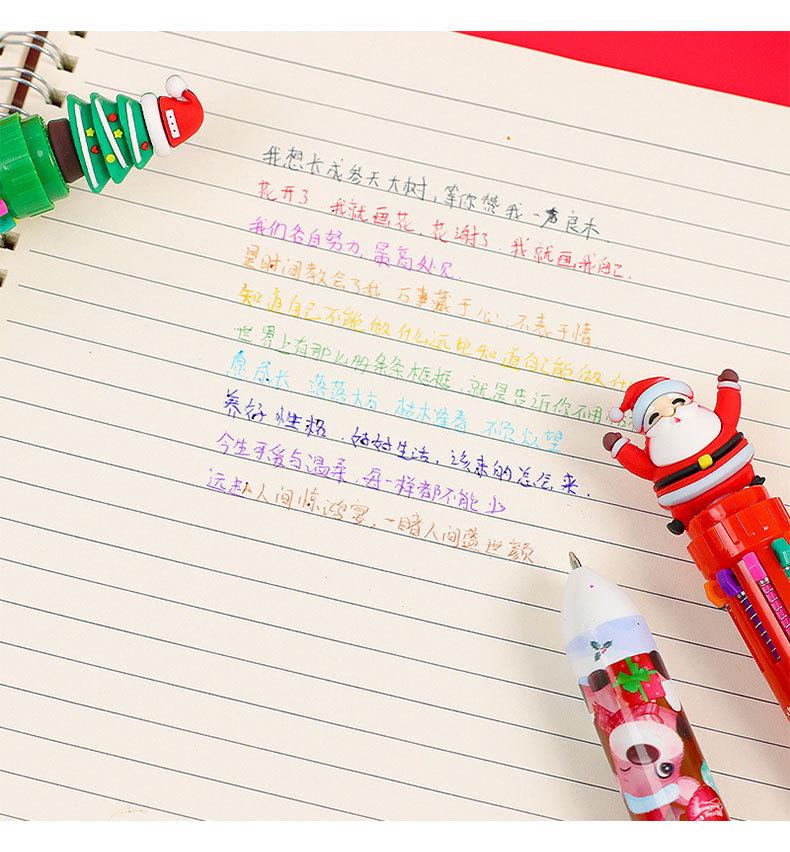 我想长成参天大树，等你赞我一声良木.
花开了 我就画花，花谢了，我就画我自己.
我们各自努力，最高处见
是时间教会了我 万事藏于心，不表于情
知道自己不能做什么远比知道自己能做什
世界上有那么的条条框框，就是告诉你不用
愿成长 落落大方，枯木逢春 不负众望
养好性格，好好生活，该来的总会来.
今生可爱与温柔，每一样都不能少
远赴人间惊鸿宴，一睹人间盛世颜